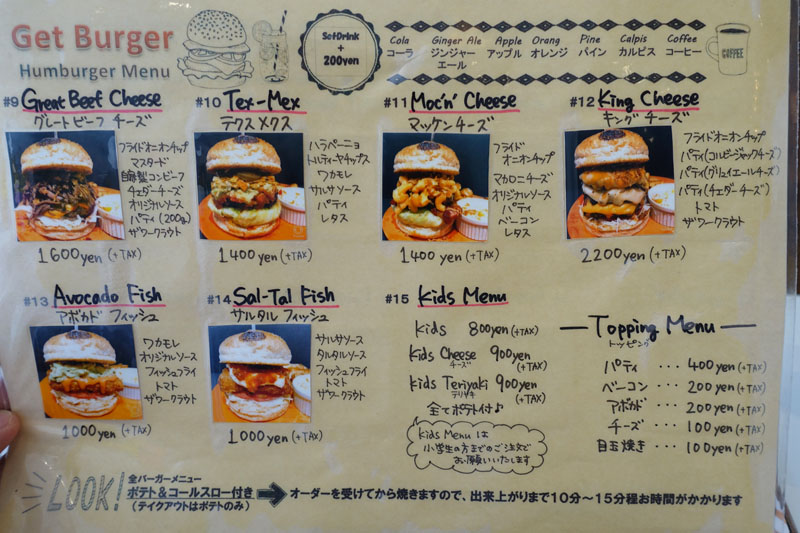 Get Burger
Humburger Menu
Set Drink
+
200yen
Cola
コーラ
Ginger Ale
ジンジャー
エール
Apple
アップル
Orang
オレンジ
Pine
パイン
Calpis
カルピス
Coffee
コーヒー
COFFEE
#9 Great Beef Cheese
グレートビーフ チーズ
フライドオニオンチップ
マスタード
自製コンビーフ
チェダーチーズ
オリジナルソース
パティ (200g)
ザワークラウト
1600yen (+TAX)
#10 Tex-Mex
テクス メクス
ハラペーニョ
トルティーヤチップス
ワカモレ
サルサソース
パティ
レタス
1400yen (+TAX)
#11 Mac'n' Cheese
マッケンチーズ
フライド
オニオンチップ
マカロニチーズ
オリジナルソース
パティ
ベーコン
レタス
1400yen (+TAX)
#12 King Cheese
キング チーズ
フライドオニオンチップ
パティ(コルビージャックチーズ)
パティ(グリュイエールチーズ)
パティ(チェダーチーズ)
トマト
ザワークラウト
2200yen (+TAX)
#13 Avocado Fish
アボカド フィッシュ
ワカモレ
オリジナルソース
フィッシュフライ
トマト
ザワークラウト
1000yen (+TAX)
#14 Sal-Tal Fish
サルタル フィッシュ
サルサソース
タルタルソース
フィッシュフライ
トマト
ザワークラウト
1000yen (+TAX)
#15 Kids Menu
Kids 800yen (+TAX)
Kids Cheese 900yen
チーズ (+TAX)
Kids Teriyaki 900yen
テリヤキ (+TAX)
全てポテト付♪
Kids Menu は
小学生の方までのご注文で
お願いいたします
Topping Menu
トッピング
パティ ・・・ 400yen (+TAX)
ベーコン ・・・ 200yen (+TAX)
アボカド ・・・ 200yen (+TAX)
チーズ ・・・ 100yen (+TAX)
目玉焼き ・・・ 100yen (+TAX)
LOOK!
全バーガーメニュー
ポテト&コールスロー付き
(テイクアウトはポテトのみ)
オーダーを受けてから焼きますので、出来上がりまで10分～15分程お時間がかかります